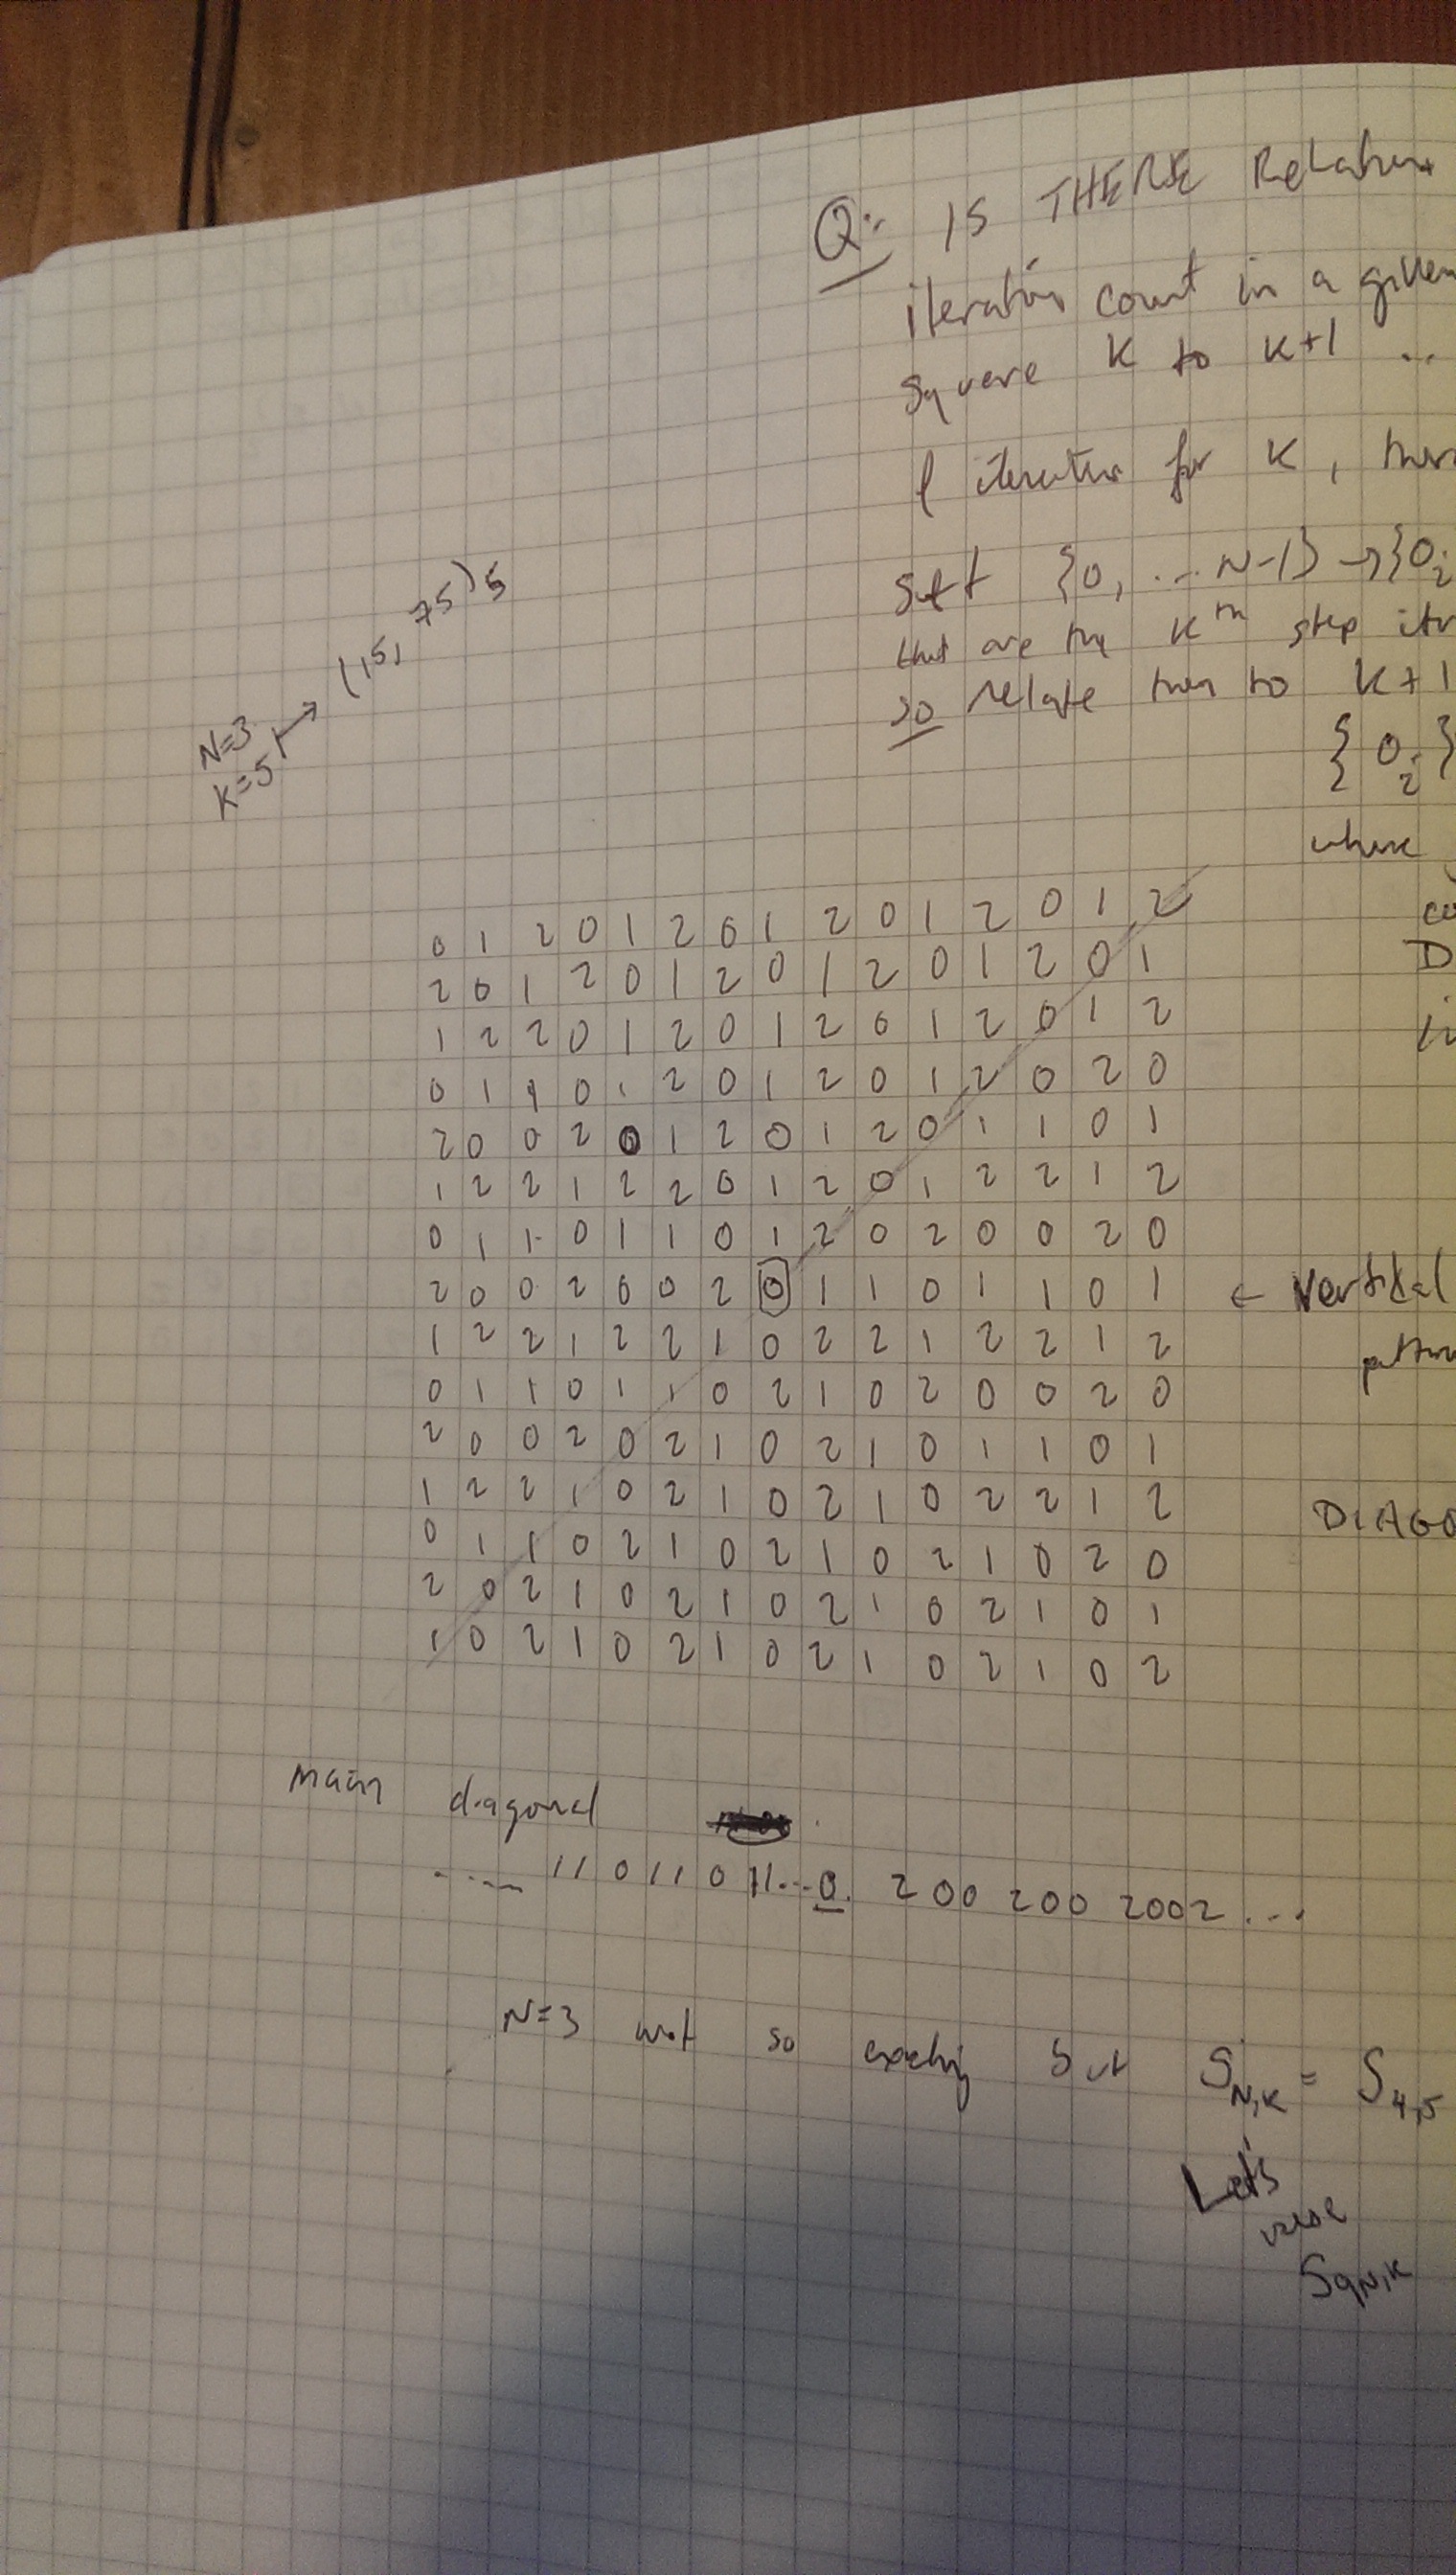 Q: IS THERE Relation
iteration count in a given
square K to K+1 ..
l iteration for K, there
Set {0, ... N-1} → {0i
that are the Kth step itr
so relate them to K+1
{0i}
where
N=3
K=5 ↦ (15, 75)5
0 1 2 0 1 2 0 1 2 0 1 2 0 1 2
2 0 1 2 0 1 2 0 1 2 0 1 2 0 1
1 2 2 0 1 2 0 1 2 0 1 2 0 1 2
0 1 1 0 1 2 0 1 2 0 1 2 0 2 0
2 0 0 2 0 1 2 0 1 2 0 1 1 0 1
1 2 2 1 2 2 0 1 2 0 1 2 2 1 2
0 1 1 0 1 1 0 1 2 0 2 0 0 2 0
2 0 0 2 0 0 2 0 1 1 0 1 1 0 1 ← Vertical
1 2 2 1 2 2 1 0 2 2 1 2 2 1 2
0 1 1 0 1 1 0 2 1 0 2 0 0 2 0
2 0 0 2 0 2 1 0 2 1 0 1 1 0 1
1 2 2 1 0 2 1 0 2 1 0 2 2 1 2
0 1 1 0 2 1 0 2 1 0 2 1 0 2 0
2 0 2 1 0 2 1 0 2 1 0 2 1 0 1
1 0 2 1 0 2 1 0 2 1 0 2 1 0 2
DIAGO
main diagonal
..... 11 0 11 0 11...0. 2 00 2 00 2002 ...
N=3 not so exciting but S N,K = S 4,5
Let's
use
Sq N,K